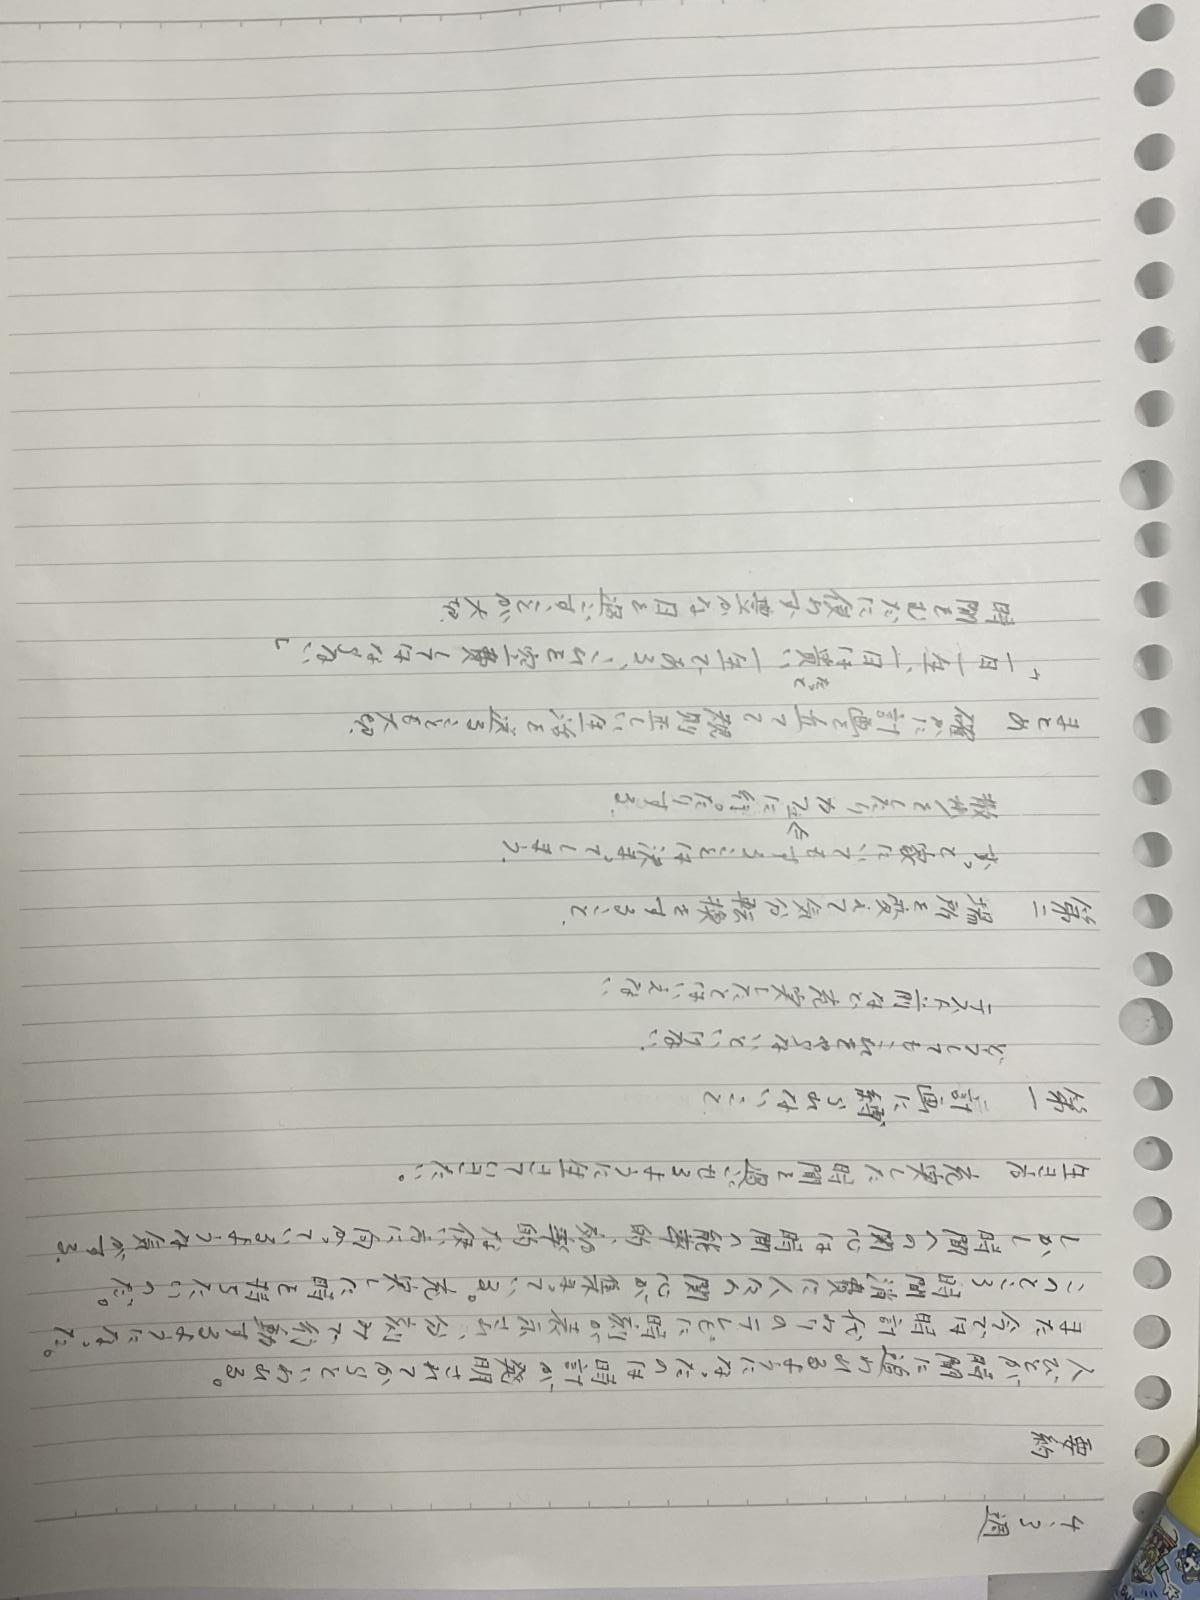 4、3 週
要約
人びとが時間に追われるようになったのは時計が発明されてからといわれる。
また今では時計代わりのテレビに時刻が表示され、分刻みで行動するようになった。
このところ時間消費に人々の関心が集まっている。充実した時を持ちたいのだ。
しかし時間への関心は時間の能率的、効率的な使い方に向かっているような気がする。
生き方 充実した時間を過ごせるように生きていきたい。
第一 計画に縛られないこと
どうしてもこれをやらないといけない、
テスト前など充実したとはいえない、
第二 場所を変えて気分転換をすること、
ずっと家にいてもすることは決まってしまう、
←
散歩をしたりカフェに行ったりする、
まとめ 確かに計画を立てて規則正しい生活を送ることも大切
だが
「一日一生、一日は貴い一生である、これを空費してはならない」
時間をむだに使わず豊かな日を過ごすことが大切